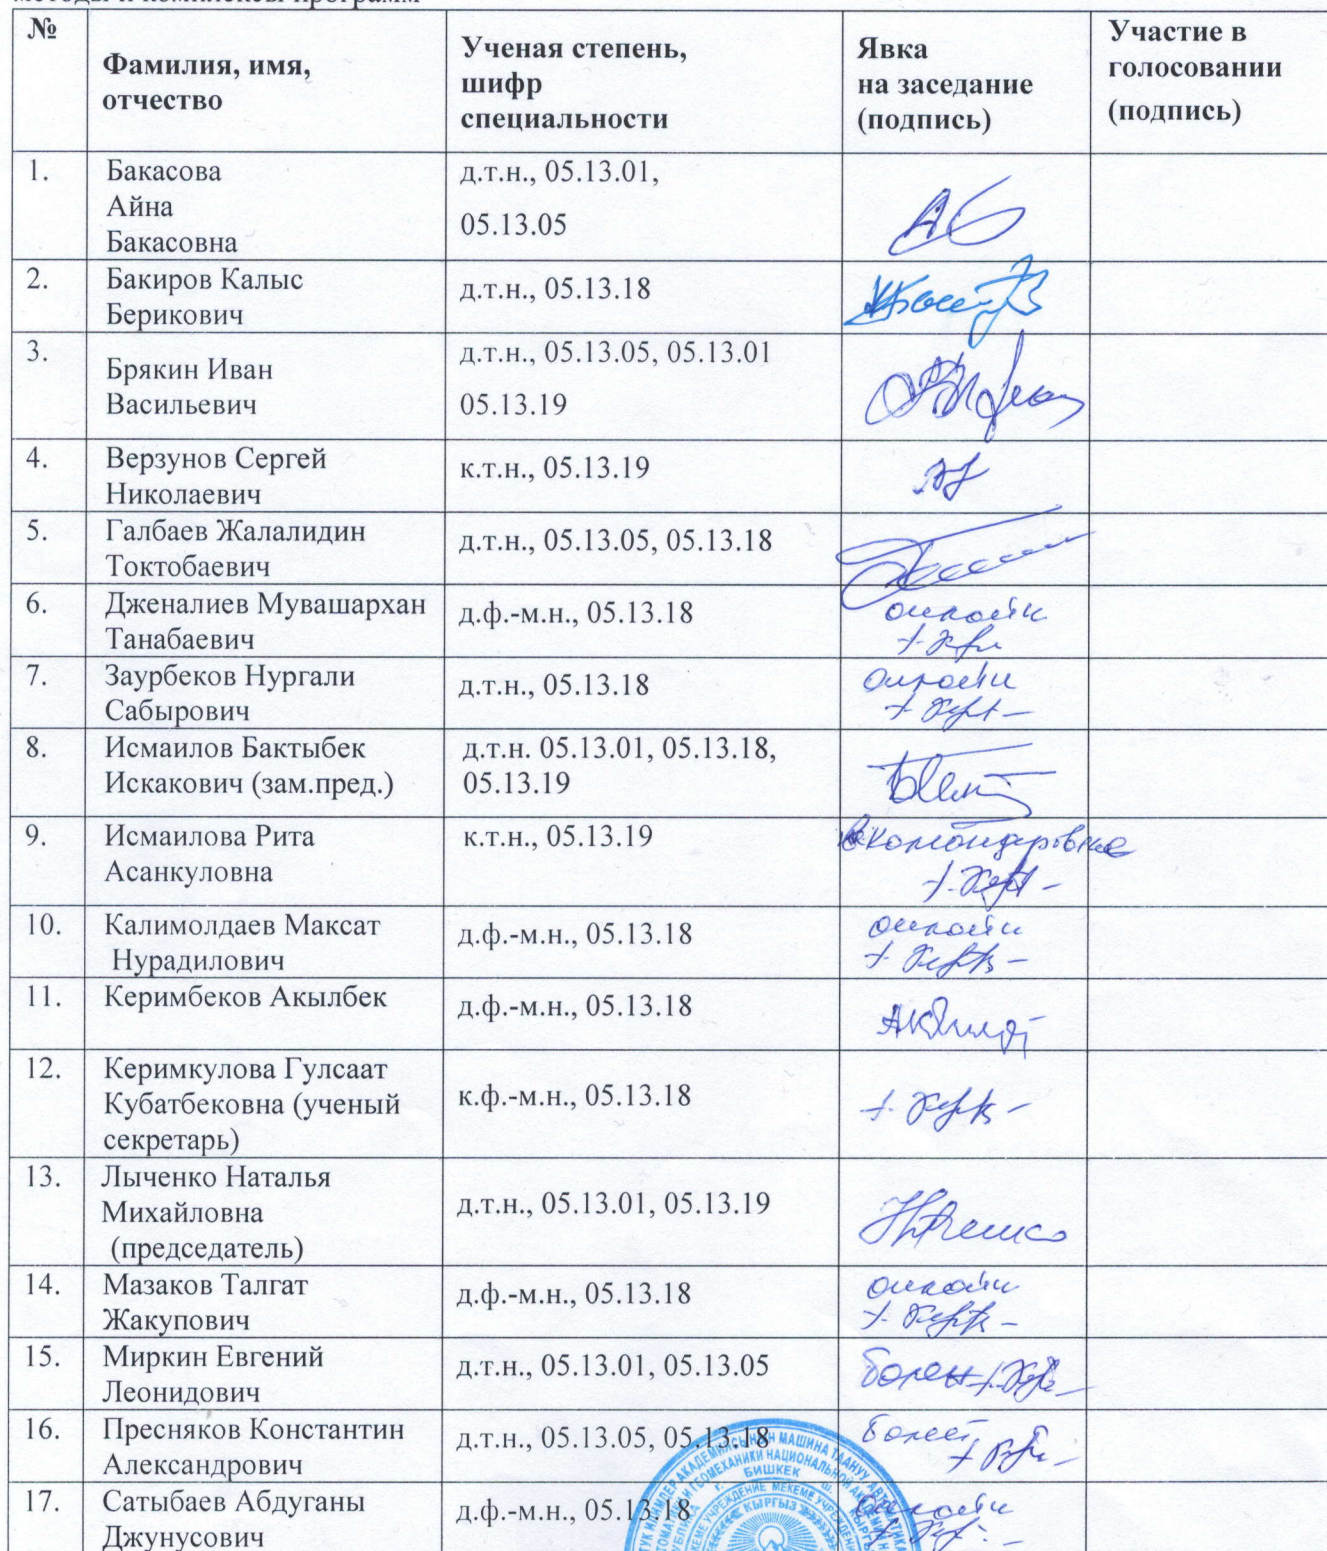 методы и комплексы программ
№
Фамилия, имя,
отчество
Ученая степень,
шифр
специальности
Явка
на заседание
(подпись)
Участие в
голосовании
(подпись)
1.
Бакасова
Айна
Бакасовна
д.т.н., 05.13.01,
05.13.05
2.
Бакиров Калыс
Берикович
д.т.н., 05.13.18
3.
Брякин Иван
Васильевич
д.т.н., 05.13.05, 05.13.01
05.13.19
4.
Верзунов Сергей
Николаевич
к.т.н., 05.13.19
5.
Галбаев Жалалидин
Токтобаевич
д.т.н., 05.13.05, 05.13.18
6.
Дженалиев Мувашархан
Танабаевич
д.ф.-м.н., 05.13.18
онлайн
7.
Заурбеков Нургали
Сабырович
д.т.н., 05.13.18
онлайн
8.
Исмаилов Бактыбек
Искакович (зам.пред.)
д.т.н. 05.13.01, 05.13.18,
05.13.19
9.
Исмаилова Рита
Асанкуловна
к.т.н., 05.13.19
в командировке
10.
Калимолдаев Максат
Нурадилович
д.ф.-м.н., 05.13.18
онлайн
11.
Керимбеков Акылбек
д.ф.-м.н., 05.13.18
12.
Керимкулова Гулсаат
Кубатбековна (ученый
секретарь)
к.ф.-м.н., 05.13.18
13.
Лыченко Наталья
Михайловна
(председатель)
д.т.н., 05.13.01, 05.13.19
14.
Мазаков Талгат
Жакупович
д.ф.-м.н., 05.13.18
онлайн
15.
Миркин Евгений
Леонидович
д.т.н., 05.13.01, 05.13.05
болен
16.
Пресняков Константин
Александрович
д.т.н., 05.13.05, 05.13.18
болеет
17.
Сатыбаев Абдуганы
Джунусович
д.ф.-м.н., 05.13.18
онлайн
БИШКЕК
КЫРГЫЗ